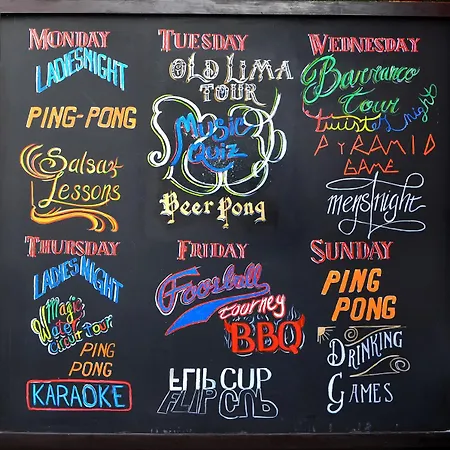 MONDAY
LADIES NIGHT
PING-PONG
Salsa
Lessons
TUESDAY
OLD LIMA
TOUR
Music
Quiz
Beer Pong
WEDNESDAY
Barranco
Tour
Twister Night
PYRAMID
GAME
men's night
THURSDAY
LADIES NIGHT
Magic
Water
Circuit Tour
PING
PONG
KARAOKE
FRIDAY
Foosball
tourney
BBQ
FLIP CUP
FLIP CUP
SUNDAY
PING
PONG
DRINKING
GAMES